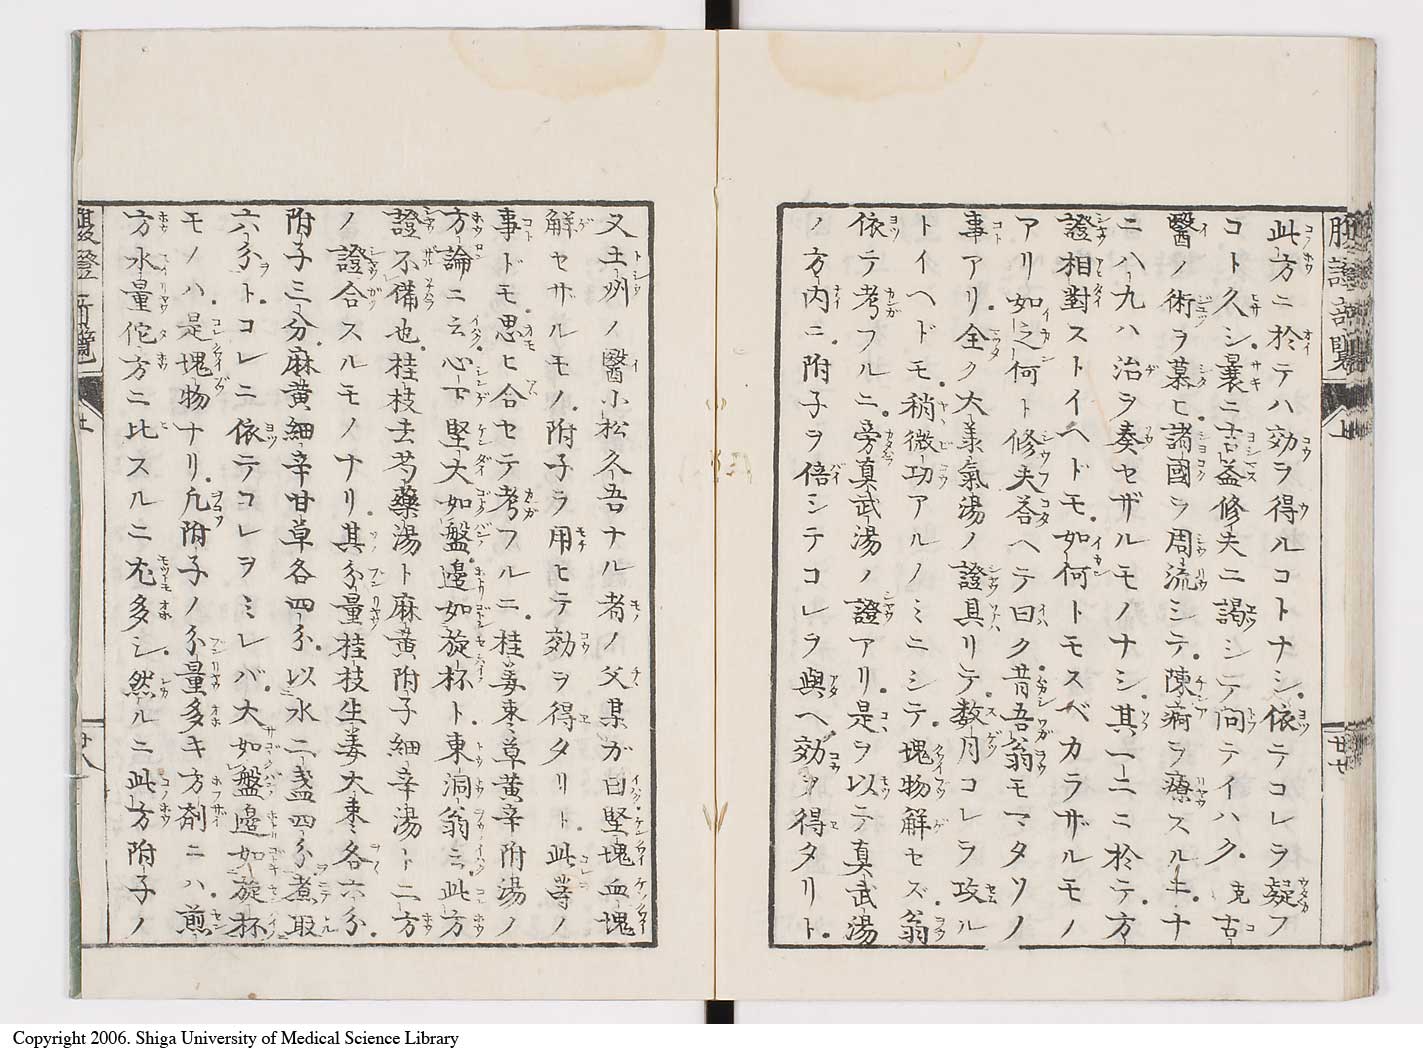 腹證前覽 上 廿七
此方ニ於テハ効ヲ得ルコトナシ依テコレヲ疑フ
コト久シ曩ニ吉益修夫ニ謁シテ問テイハク克古
醫ノ術ヲ慕ヒ諸國ヲ周流シテ陳痼ヲ療スル十ナ
ニハ九ハ治ヲ奏セザルモノナシ其一二ニ於テ方
證相對ストイヘドモ如何トモスベカラザルモノ
アリ如之何ト修夫荅ヘテ曰ク昔吾翁モマタソノ
事アリ全ク大羕氣湯ノ證具リテ数月コレヲ攻ル
トイヘドモ稍微功アルノミニシテ塊物解セズ翁
依テ考フルニ旁真武湯ノ證アリ是ヲ以テ真武湯
ノ方内ニ附子ヲ倍シテコレヲ與ヘ効ヲ得タリト
又土州ノ醫小松久吾ナル者ノ父某ガ曰堅塊血塊
解セザルモノ附子ヲ用ヒテ効ヲ得タリト此等ノ
事ドモ思ヒ合セテ考フルニ桂姜棗草黄辛附湯ノ
方論ニ云心下堅大如盤邉如旋杯ト東洞翁云此方
證不備也桂枝去芍藥湯ト麻黄附子細辛湯ト二方
ノ證合スルモノナリ其分量桂枝生姜大棗各六分
附子三分麻黄細辛甘草各四分以水二盞四分煮取
六分トコレニ依テコレヲミレバ大如盤邉如旋杯
モノハ是塊物ナリ凢附子ノ分量多キ方剤ニハ煎
方水量佗方ニ比スルニ尤多シ然ルニ此方附子ノ
Copyright 2006. Shiga University of Medical Science Library